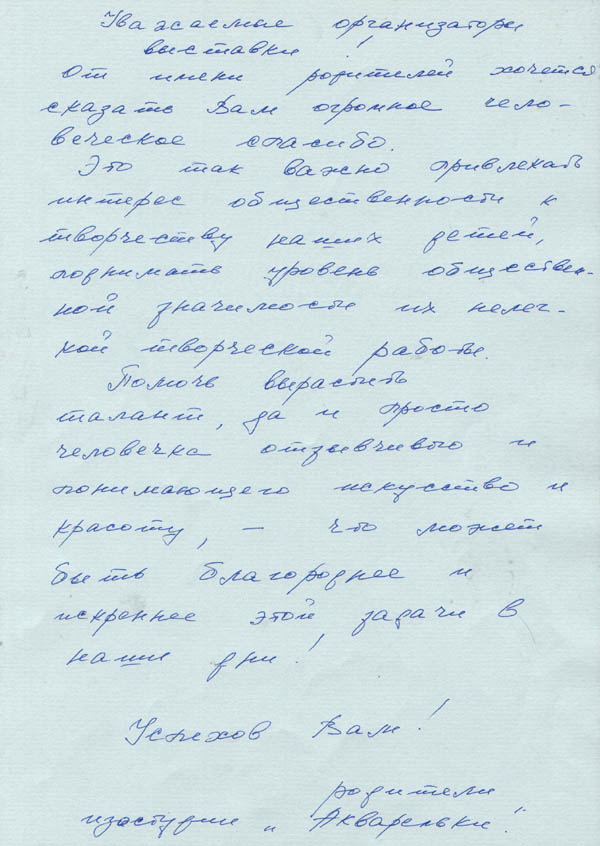 Уважаемые организаторы
выставки!
От имени родителей хочется
сказать Вам огромное чело-
веческое спасибо.
Это так важно привлекать
интерес общественности к
творчеству наших детей,
поднимать уровень обществен-
ной значимости их нелег-
кой творческой работы.
Помочь вырастить
талант, да и просто
человечка отзывчивого и
понимающего искусство и
красоту, – что может
быть благороднее и
искреннее этой задачи в
наши дни!
Успехов Вам!
родители
изостудии „Акварельки".